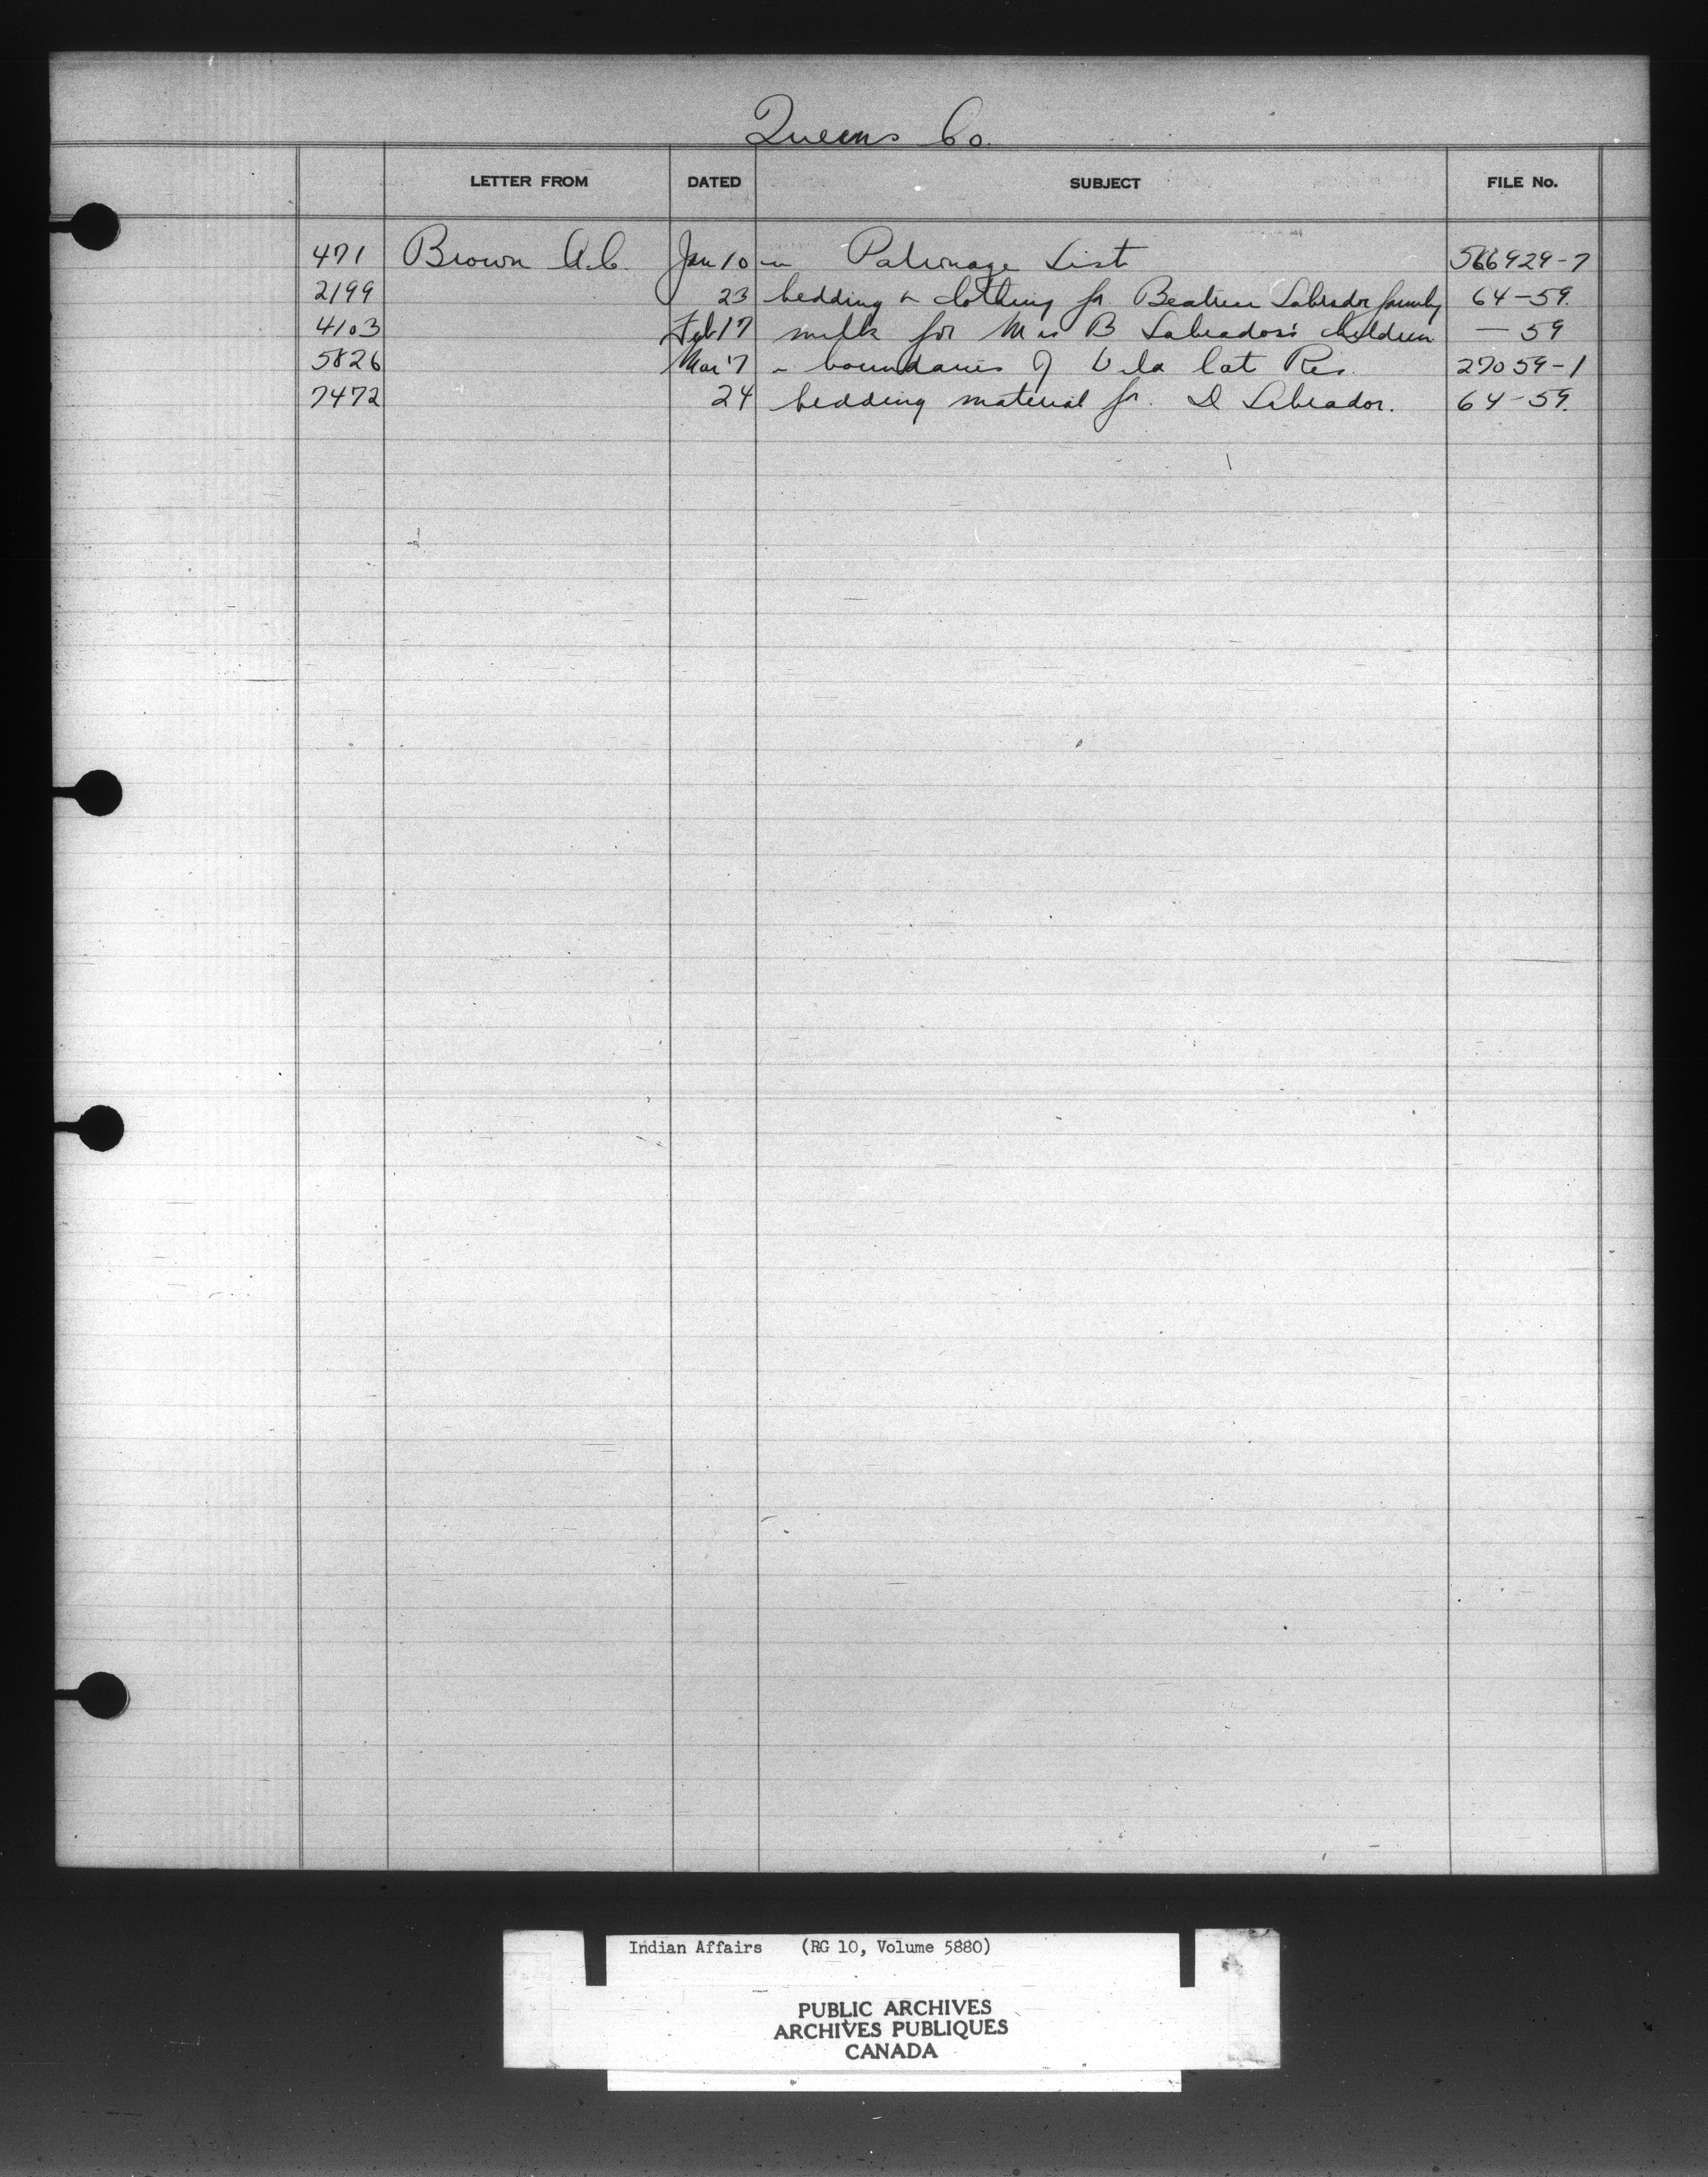 Queens Co.
LETTER FROM DATED SUBJECT FILE No.
471 Brown A.C. Jan 10 " Patronage List 566929-7
2199 23 bedding & clothing for Beatrice Labrador family 64-59.
4103 Feb 17 milk for Mrs B Labrador's children — 59
5826 Mar 7 " boundaries of Wild Cat Res. 27059-1
7472 24 bedding material for D Labrador. 64-59.
Indian Affairs (RG 10, Volume 5880)
PUBLIC ARCHIVES
ARCHIVES PUBLIQUES
CANADA